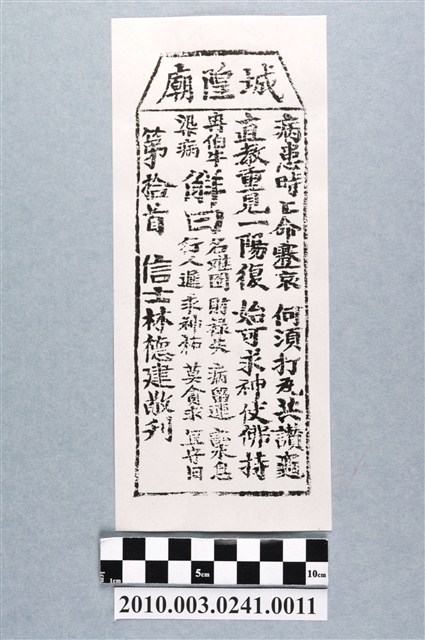 城隍廟
病患時命蹇衰 何須打瓦共鑽龜
直教重見一陽復 始可求神仗佛持
冉伯牛
染病
解曰
名難圖 財祿失 病留連 訟未息
行人遲 求神祐 莫貪求 宜守旧
第拾首 信士林德建敬列
1cm 5cm 10cm
2010.003.0241.0011